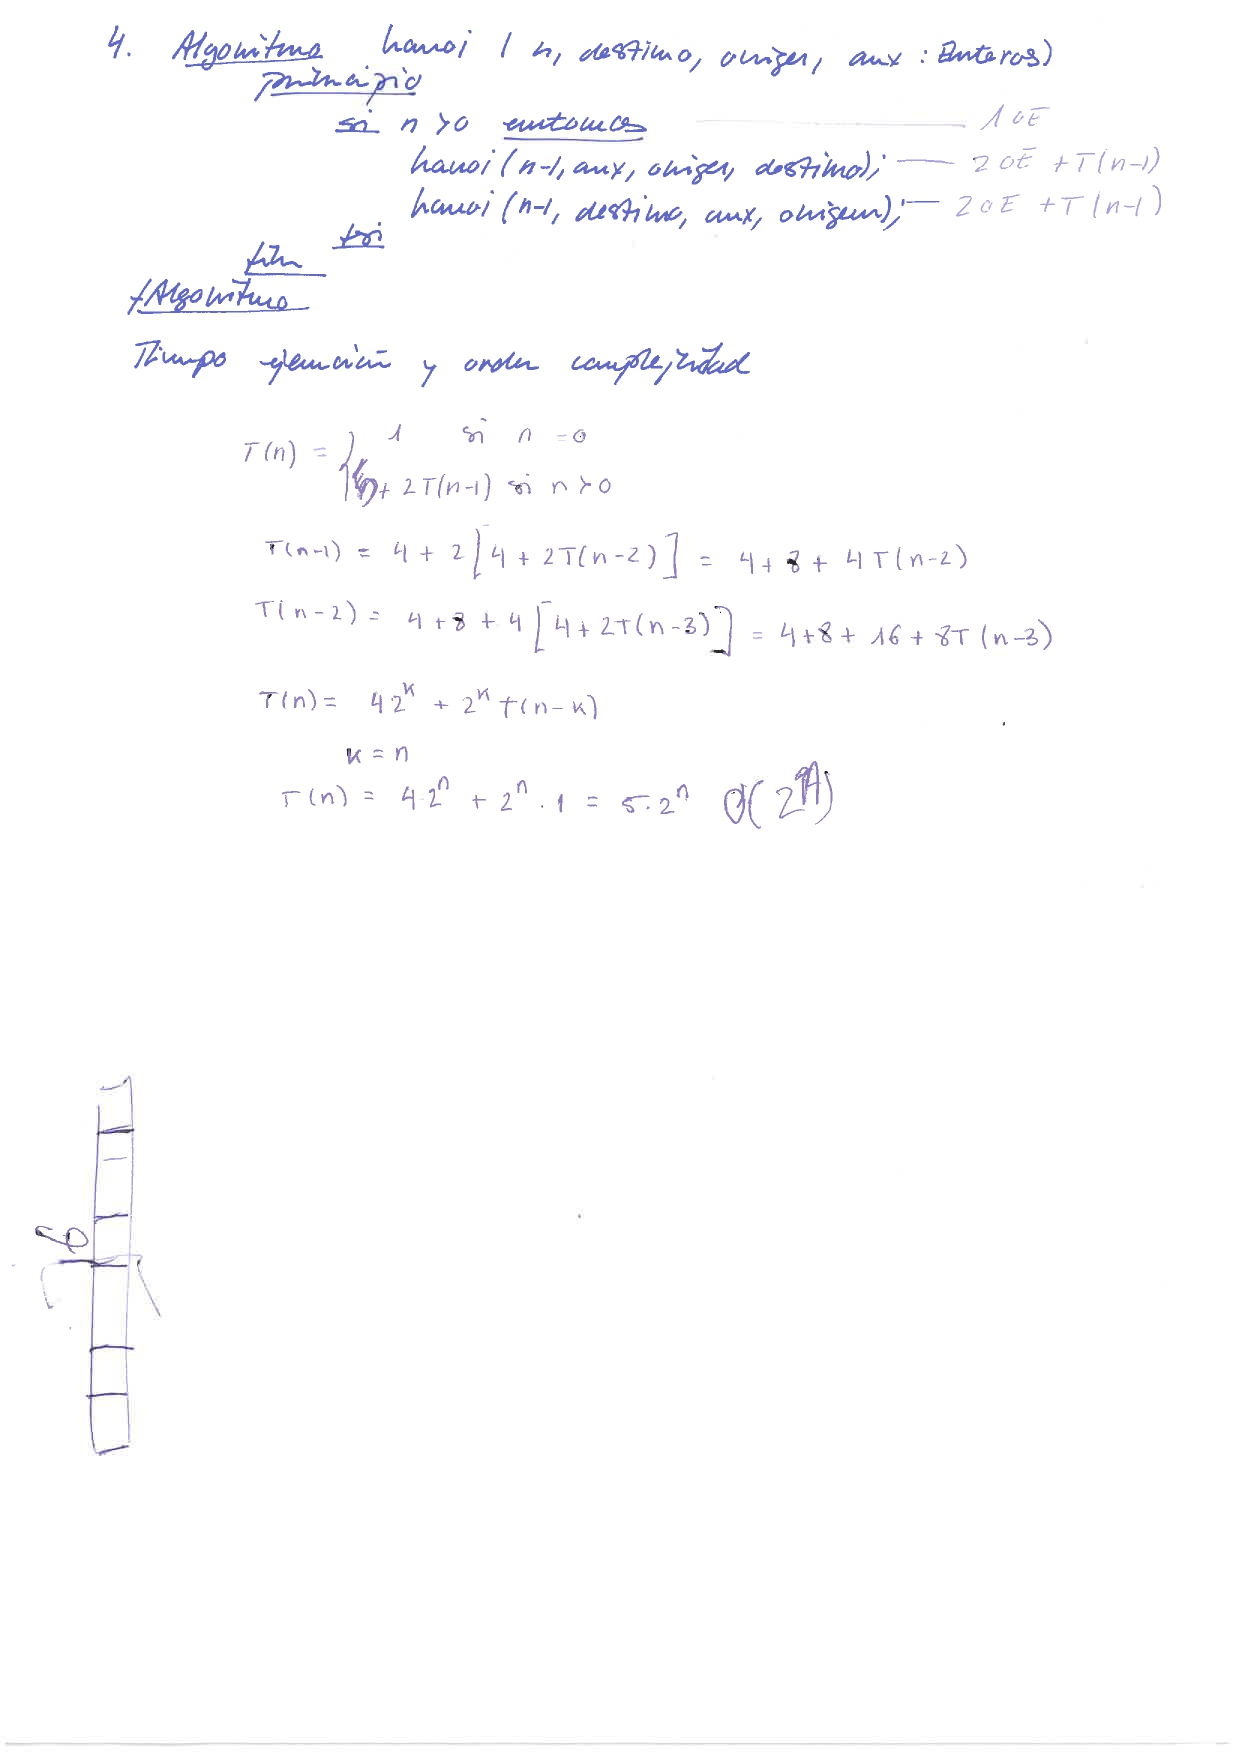 4. Algoritmo hanoi ( n, destino, origen, aux : Enteros)
principio
si n >0 entonces 1 OE
hanoi (n-1, aux, origen, destino); 2 OE + T(n-1)
hanoi (n-1, destino, aux, origen); 2 OE + T(n-1)
fsi
fin
fAlgoritmo
Tiempo ejecución y orden complejidad
T(n) = { 1 si n =0
+ 2T(n-1) si n >0
T(n-1) = 4 + 2 [4 + 2T(n-2)] = 4 + 8 + 4T(n-2)
T(n-2) = 4+8+4 [4+2T(n-3)] = 4+8+16+8T(n-3)
T(n) = 4 2^k + 2^k T(n-k)
k = n
T(n) = 4·2^n + 2^n · 1 = 5·2^n O(2^n)
6